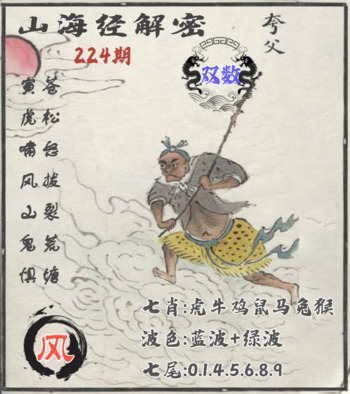 山海经解密
夸父
224期
双数
寅苍
虎松
啸怒
风拔
山裂
鬼荒
惧塘
风
七肖:虎牛鸡鼠马兔猴
波色:蓝波+绿波
七尾:0.1.4.5.6.8.9